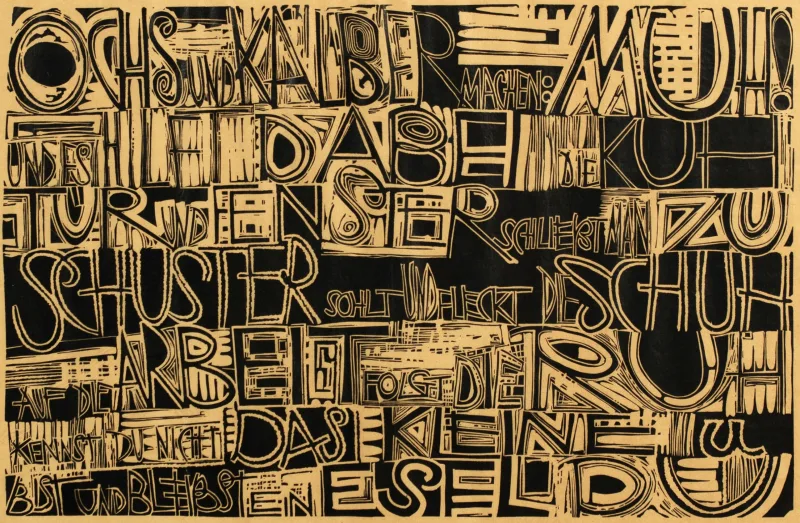 OCHS UND KALBER MACHEN: MUH!
UND ES HILFT DABEI DIE KUH
TÜR UND FENSTER SCHLIEßT MAN ZU
SCHUSTER SOHLT UND FLECKT DIE SCHUH
AUF DIE ARBEIT FOLGT DIE RUH
KENNST DU NICHT DAS KLEINE u
BIST UND BLEIBST EIN ESEL DU